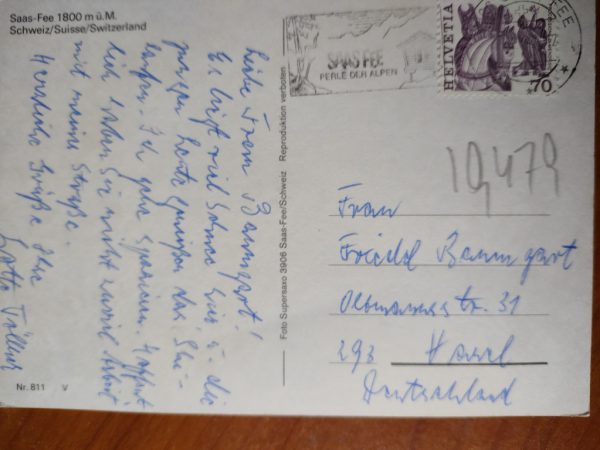 Saas-Fee 1800 m ü.M.
Schweiz/Suisse/Switzerland
Liebe Frau Baumgart!
Es liegt viel Schnee hier u. die
ganzen Leute genießen das Ski-
laufen. Ich gehe spazieren. Hoffent-
lich haben Sie nicht zuviel Arbeit
mit meiner Straße.
Herzliche Grüße Ihre
Lotte
Nr. 811 V
Foto Supersaxo 3906 Saas-Fee/Schweiz Reproduktion verboten
SAAS FEE
PERLE DER ALPEN
HELVETIA
70
FEE
19,479
Frau
Friedel Baumgart
str. 31
293
Deutschland